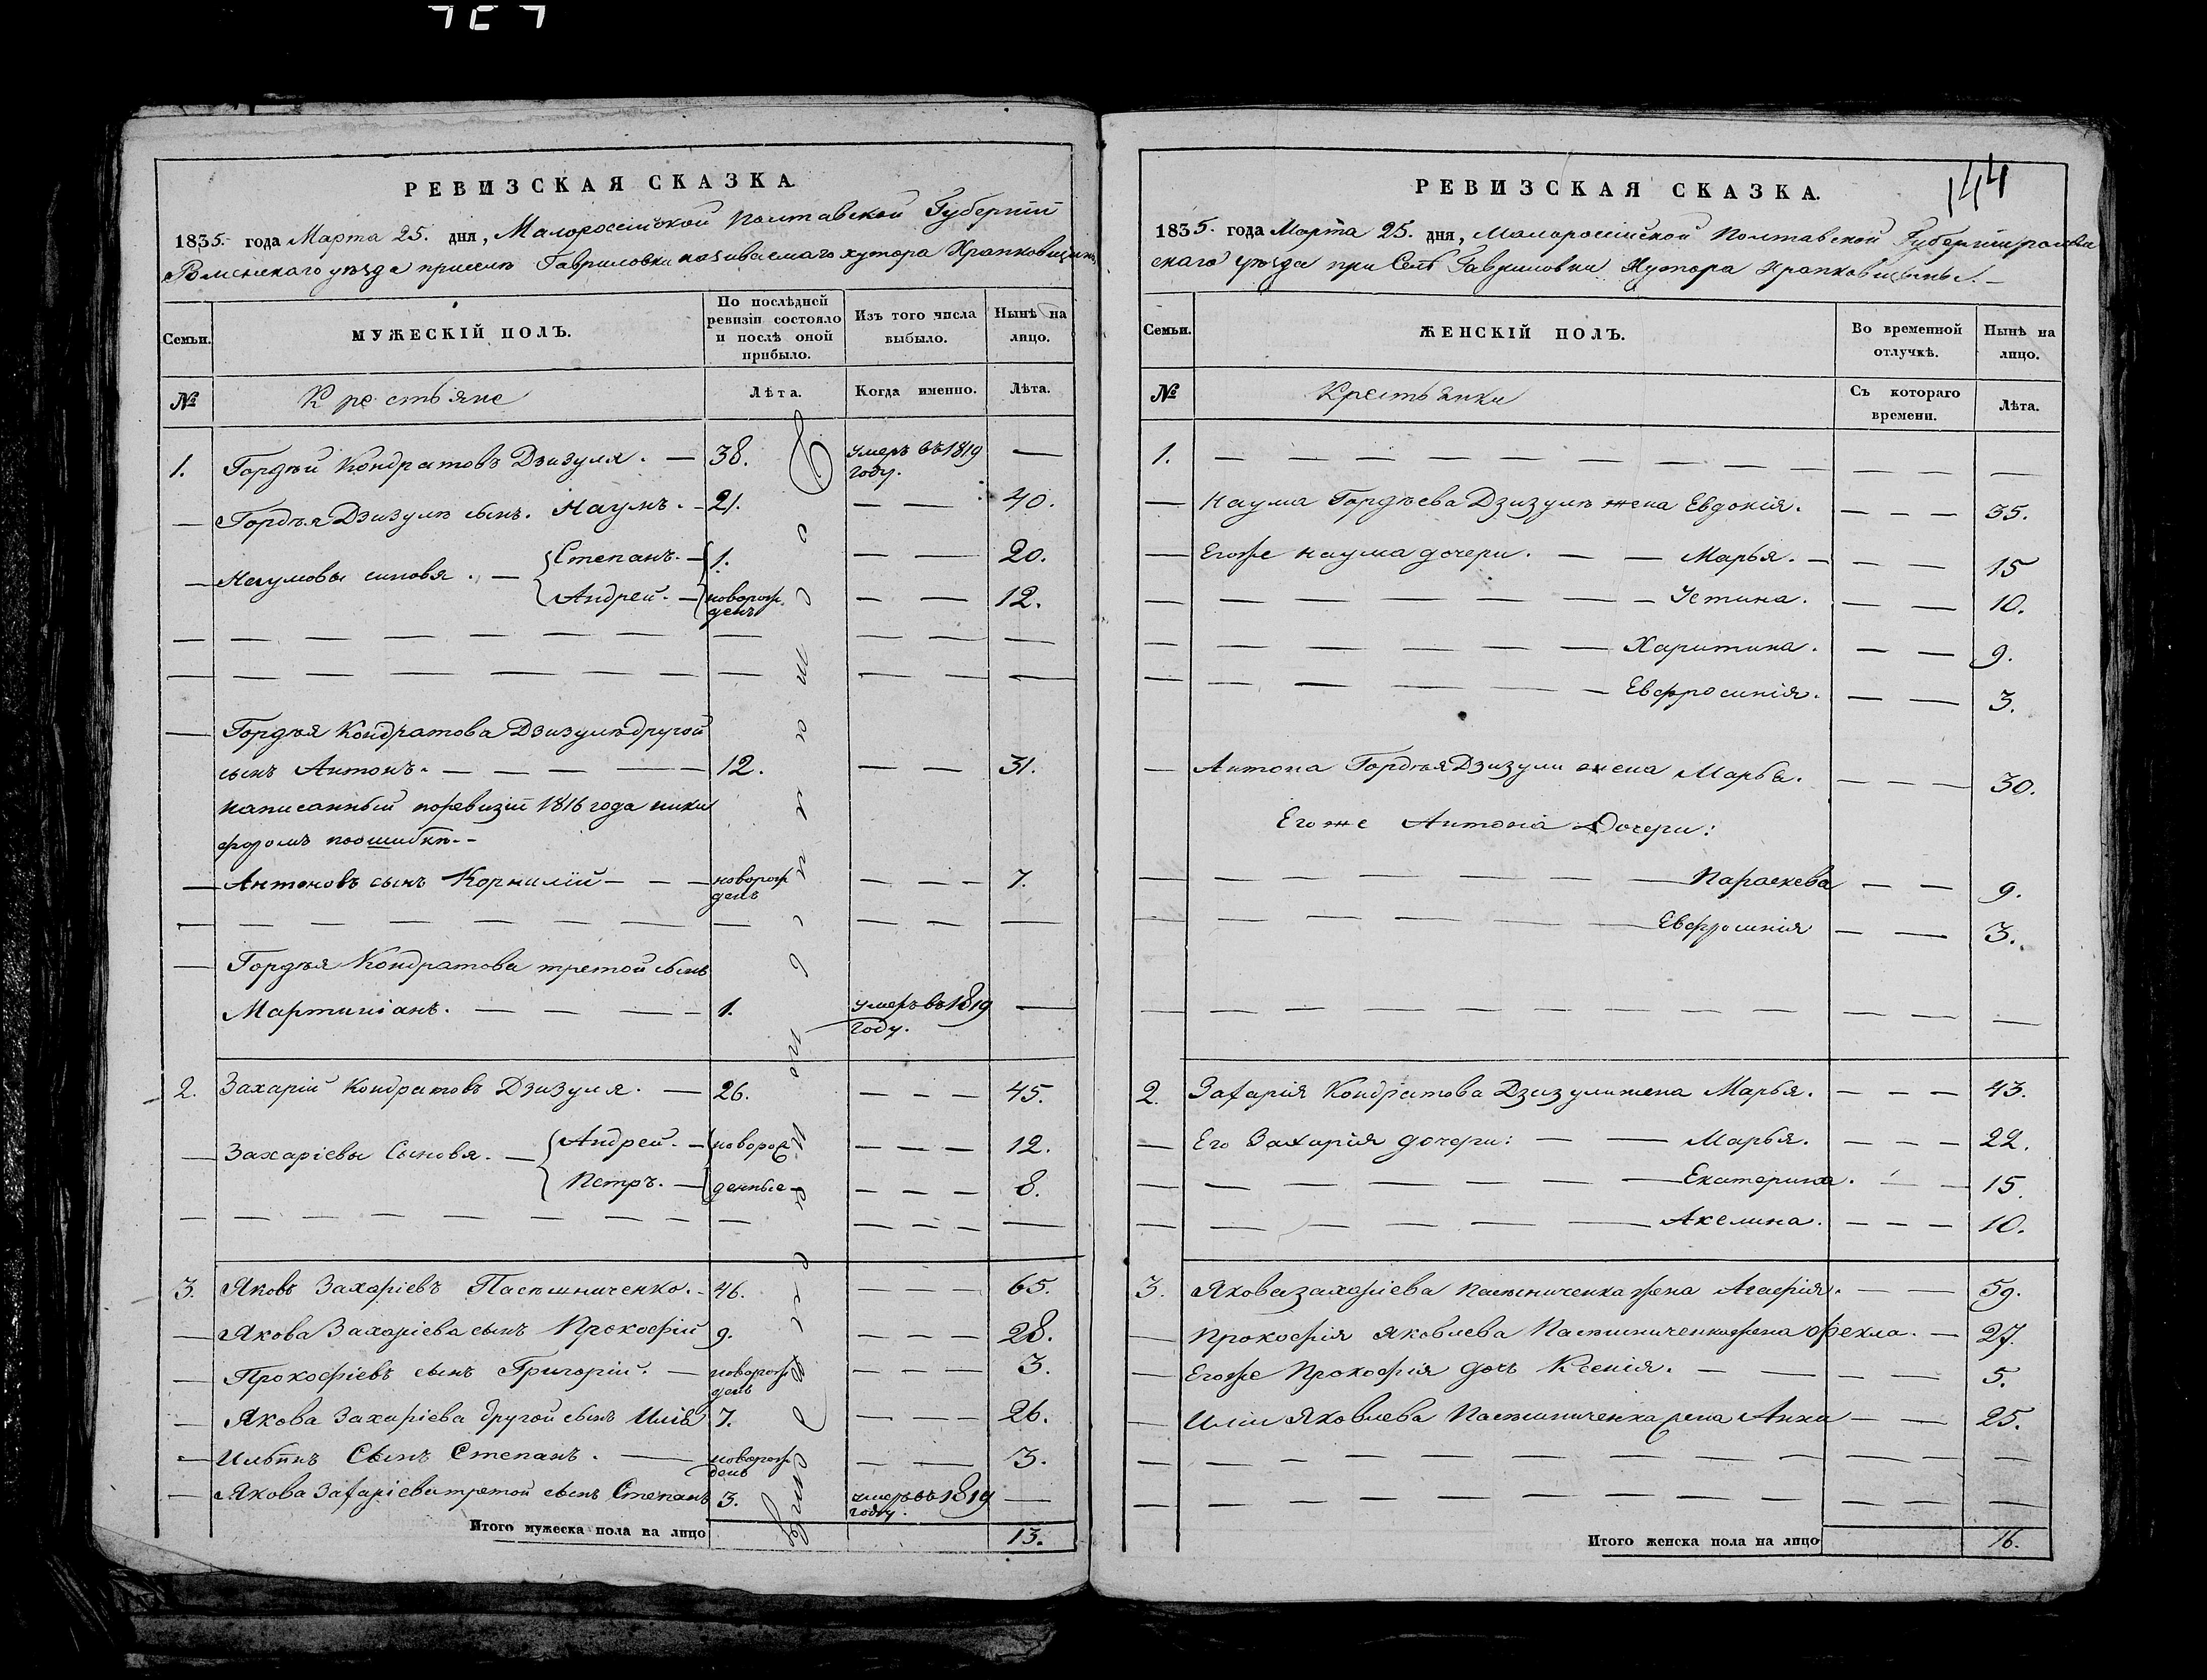 РЕВИЗСКАЯ СКАЗКА
1835. года Марта 25. дня, Малороссійской Полтавской Губерніи
Роменскаго уѣзда приселѣ Гавриловки називаемаго хутора Храпковщины
Семьи.
МУЖЕСКІЙ ПОЛЪ.
По послѣдней ревизіи состояло и послѣ оной прибыло.
Изъ того числа выбыло.
Нынѣ на лицо.
№
Крестьяне
Лѣта.
Когда именно.
Лѣта.
1. Гордѣй Кондратовъ Дзизуля. — 38. умеръ въ 1819 году. —
— Гордѣя Дзизулѣ сынъ. Наумъ. - 21. — — 40.
— Наумовы синовя. — Степанъ. — 1. — — 20.
Андрей. — новорожденъ — — 12.
— Гордѣя Кондратова Дзизулѣ другой
сынъ Антонъ. — — — — 12. — — 31.
написанный поревизіи 1816 года ники
форомъ поошибкѣ. -
— Антоновъ сынъ Корнилій — — — новорожденъ — — — 7.
— Гордѣя Кондратова третой сынъ
Мартиніанъ. — — — — 1. умеръ въ 1819 году. —
2. Захарій Кондратовъ Дзизуля. — 26. — — — 45.
— Захаріевы Сыновя. — Андрей. — новорож — — — 12.
Петръ. — денные — — — 8.
3. Яковъ Захаріевъ Пасѣшниченко. - 46. — — — 65.
— Якова Захаріева сынъ Прокофій 9. — — — 28.
— Прокофіевъ сынъ Григорій. — новорожденъ — — — 3.
— Якова Захаріева другой сынъ Илія 7. — — — 26.
— Ильинъ Сынъ Степанъ. — новорожденъ — — 3.
— Якова Захаріева третой сынъ Степанъ 3. умеръ въ 1819 году. —
Итого мужеска пола на лицо 13.
144
РЕВИЗСКАЯ СКАЗКА.
1835. года Марта 25. дня, Малоросійской Полтавской Губерніи ромен
скаго уѣзда при Селѣ Гавриловки Хутора Храпковщины. —
Семьи.
ЖЕНСКІЙ ПОЛЪ.
Во временной отлучкѣ.
Нынѣ на лицо.
№
Крестьянки
Съ котораго времени.
Лѣта.
1. — — — — — — — —
— Наума Гордѣева Дзизулѣ жена Евдокія. — — — 35.
— Егоже наума дочери. — — Марья. — — — 15
— — — — — Устина. — — 10.
— — — — — Харитина. — — 9.
— — — — — Евфросинія. — — 3.
— Антона Гордѣя Дзизули жена Марья. — — — 30.
Егоже Антона Дочери:
— — — — — Параскева — — 9.
— — — — — Евфросинія — — 3.
2. Захарія Кондратова Дзизули жена Марья. — — — 43.
— Его Захарія дочери: — — Марья. — — — 22.
— — — — — Екатерина. — — 15.
— — — — — Акелина. — — — 10.
3. Якова захаріева Пасѣшниченка жена Агафія. — — 59.
— Прокофія Яковлева Пасѣшниченка жена Фекла. — 27.
— Егоже Прокофія дочь Ксенія. — — — — 5.
— Иліи Яковлева Пасѣшниченка жена Анна — — 25.
Итого женска пола на лицо 16.